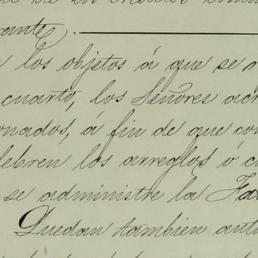 rante)
los objetos á que se a
cuarto, los Señores acr
onados, á fin de que con
lebren los arreglos ó c
se administre la Fa
Quedan tambien auto